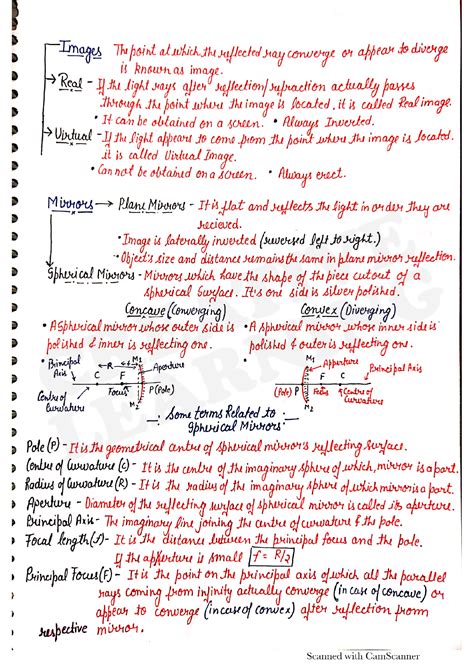 Images The point at which the reflected ray converge or appear to diverge
is known as image.
→ Real - If the light rays after reflection/refraction actually passes
through the point where the image is located, it is called Real image.
• It can be obtained on a screen. • Always Inverted.
→ Virtual - If the light appears to come from the point where the image is located.
it is called Virtual Image.
• Can not be obtained on a screen. • Always erect.
Mirrors → Plane Mirrors - It is flat and reflects the light in order they are
recieved.
• Image is laterally inverted (reversed left to right.)
• Object's size and distance remains the same in plane mirror reflection.
Spherical Mirrors - Mirrors which have the shape of the piece cutout of a
spherical surface. It's one side is silver polished.
Concave (Converging)
• A spherical mirror whose outer side is
polished & inner is reflecting one.
Convex (Diverging)
• A spherical mirror whose inner side is
polished & outer is reflecting one.
Principal Axis
C R F M1
Aperture
Focus P (Pole)
Centre of Curvature
M2
M1 Aperture
Principal Axis
(Pole) P F C
Focus Centre of Curvature
M2
Some terms Related to
Spherical Mirrors
Pole (P) - It is the geometrical centre of spherical mirror's reflecting surface.
Centre of Curvature (C) - It is the centre of the imaginary sphere of which, mirror is a part.
Radius of Curvature (R) - It is the radius of the imaginary sphere of which mirror is a part.
Aperture - Diameter of the reflecting surface of spherical mirror is called its aperture.
Principal Axis - The imaginary line joining the centre of curvature & the pole.
Focal length (f) - It is the distance between the principal focus and the pole.
If the apperture is small f = R/2
Principal Focus (F) - It is the point on the principal axis of which all the parallel
rays coming from infinity actually converge (in case of concave) or
appear to converge (in case of convex) after reflection from
respective mirror.
Scanned with CamScanner